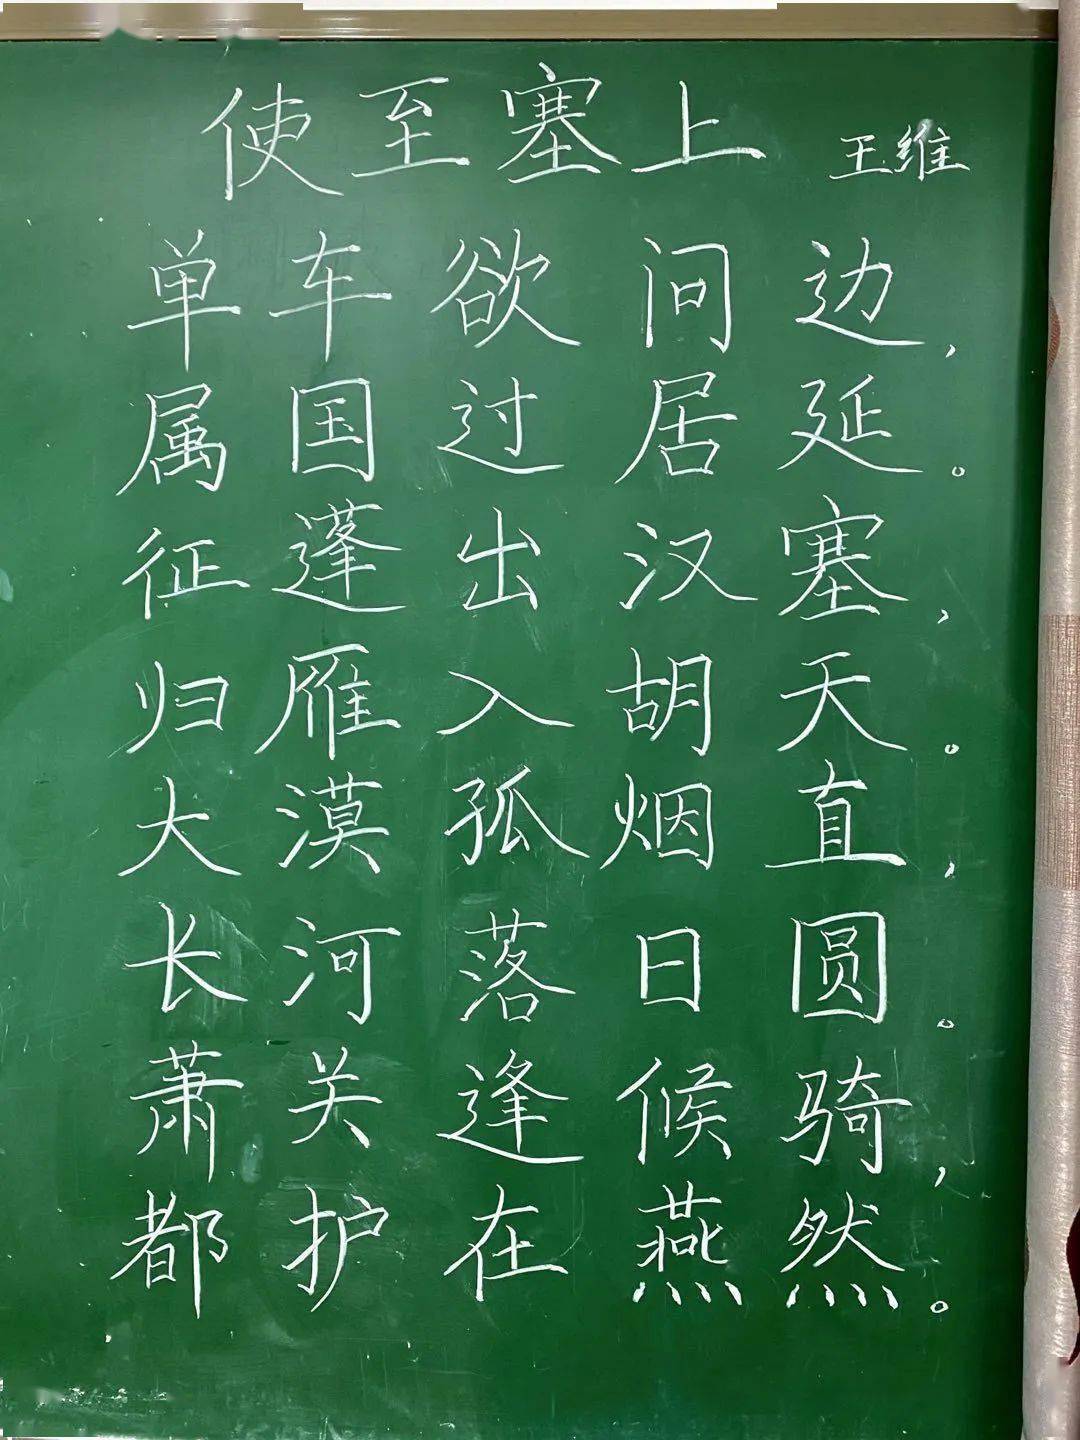 使至塞上 王维
单车欲问边，
属国过居延。
征蓬出汉塞，
归雁入胡天。
大漠孤烟直，
长河落日圆。
萧关逢候骑，
都护在燕然。